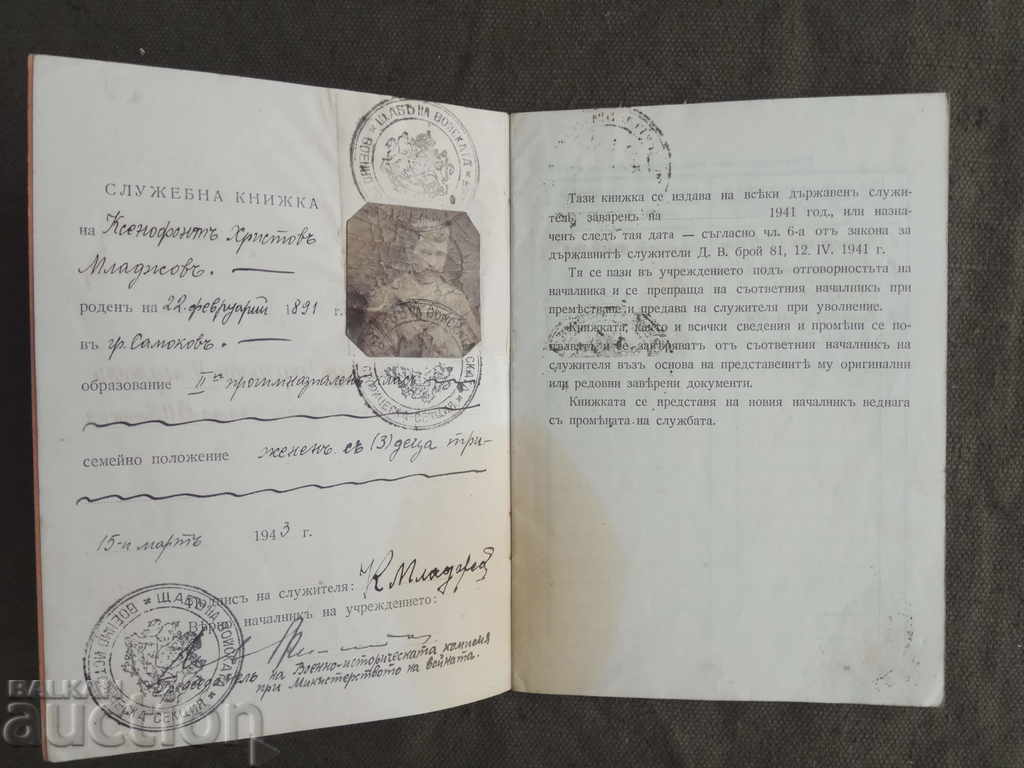 СЛУЖЕБНА КНИЖКА
на Ксенофонтъ Христовъ
Младжовъ.
роденъ на 22. февруарий 1891 г.
въ гр. Самоковъ.
образование II прогимназиаленъ класъ
семейно положение жененъ съ (3) деца три
15-и мартъ 1943 г.
на служителя: К Младжов
началникъ на учреждението:
Председатель на Военно-историческата комисия
при Министерството на войната.
ЩАБЪ НА ВОЙСКАТА
ЩАБЪ НА ВОЙСКАТА
СЕКЦИЯ
Тази книжка се издава на всѣки държавенъ служи-
тель, заваренъ на 1941 год., или назна-
ченъ следъ тая дата — съгласно чл. 6-а отъ закона за
държавнитѣ служители Д. В. брой 81, 12. IV. 1941 г.
Тя се пази въ учреждението подъ отговорностьта на
началника и се препраща на съответния началникъ при
премѣстване и предава на служителя при уволнение.
Книжката, както и всички сведения и промѣни се по-
пълватъ и се завѣряватъ отъ съответния началникъ на
служителя възъ основа на представенитѣ му оригинални
или редовни завѣрени документи.
Книжката се представя на новия началникъ веднага
съ промѣната на службата.
БАЛКАН
аукцион